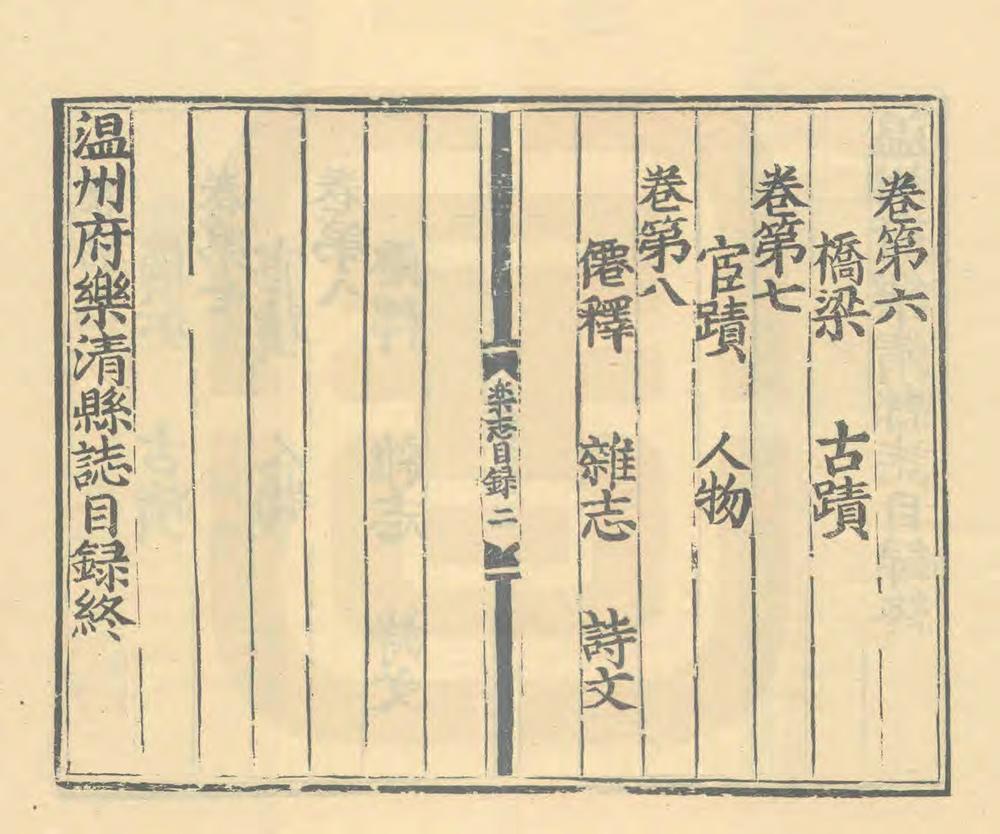 卷第六
橋梁　古蹟
卷第七
宦蹟　人物
卷第八
僊釋　雜志　詩文
楽志目録　二
温州府樂清縣誌目録終